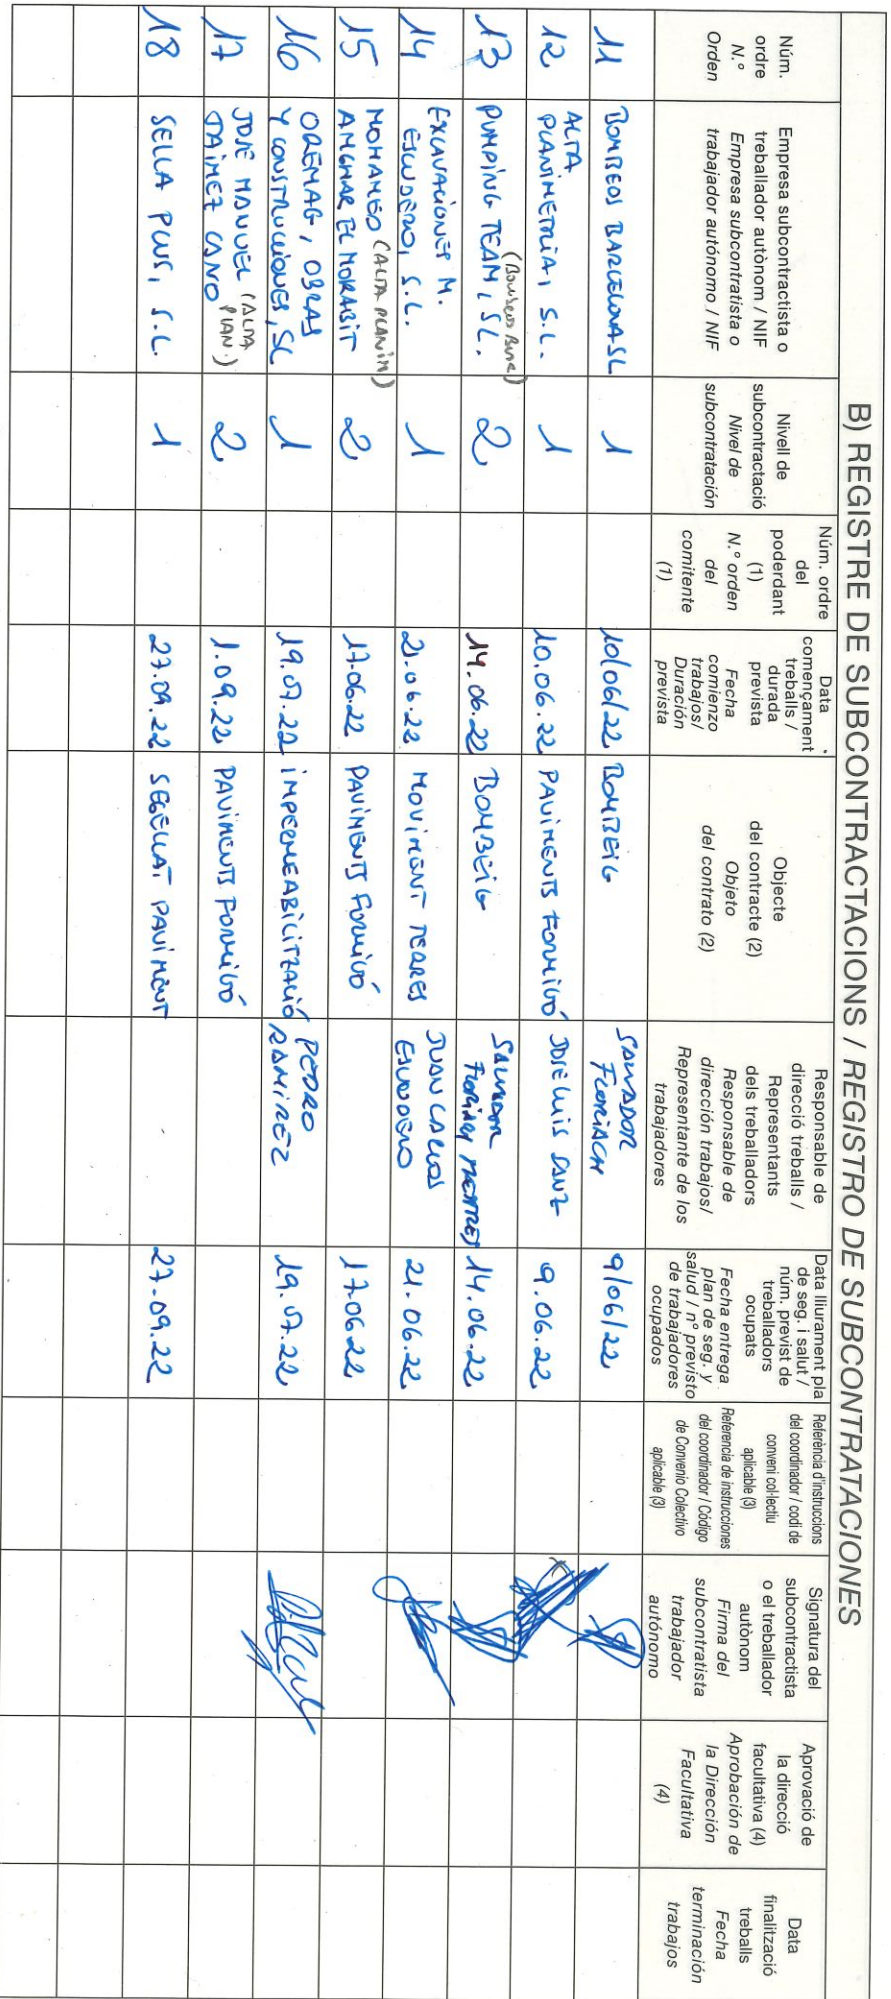 B) REGISTRE DE SUBCONTRACTACIONS / REGISTRO DE SUBCONTRATACIONES
Núm.
ordre
N.º
Orden
Empresa subcontractista o
treballador autònom / NIF
Empresa subcontratista o
trabajador autónomo / NIF
Nivell de
subcontractació
Nivel de
subcontratación
Núm. ordre
del
poderdant
(1)
N.º orden
del
comitente
(1)
Data
començament
treballs /
durada
prevista
Fecha
comienzo
trabajos/
Duración
prevista
Objecte
del contracte (2)
Objeto
del contrato (2)
Responsable de
direcció treballs /
Representants
dels treballadors
Responsable de
dirección trabajos/
Representante de los
trabajadores
Data lliurament pla
de seg. i salut /
núm. previst de
treballadors
ocupats
Fecha entrega
plan de seg. y
salud / nº previsto
de trabajadores
ocupados
Referència d'instruccions
del coordinador / codi de
conveni col·lectiu
aplicable (3)
Referencia de instrucciones
del coordinador / Código
de Convenio Colectivo
aplicable (3)
Signatura del
subcontractista
o el treballador
autònom
Firma del
subcontratista
trabajador
autónomo
Aprovació de
la direcció
facultativa (4)
Aprobación de
la Dirección
Facultativa
(4)
Data
finalització
treballs
Fecha
terminación
trabajos
11
BOMBEOS BARCELONA SL
1
10/06/22
BOMBEIG
SALVADOR
FLORIACH
9/06/22
12
ALTA
PLANIMETRIA, S.L.
1
10.06.22
PAVIMENTS FORMIGÓ
JOSE LUIS SANZ
9.06.22
13
PUMPING TEAM, SL.
(Bombeos Barc)
2
14.06.22
BOMBEIG
SALVADOR
14.06.22
14
EXCAVACIONES M.
ESCUDERO, S.L.
1
21.06.22
MOVIMENT TERRES
JUAN CARLOS
ESCUDERO
21.06.22
15
MOHAMED (ALTA PLANIM)
AMGHAR EL MORABIT
2
17.06.22
PAVIMENTS FORMIGÓ
17.06.22
16
OREMAG, OBRAS
Y CONSTRUCCIONES, SL
1
19.07.22
IMPERMEABILITZACIÓ
PEDRO
RAMIREZ
19.07.22
17
JOSE MANUEL (ALTA
JAIMEZ CANO PLAN.)
2
1.09.22
PAVIMENTS FORMIGÓ
18
SELLA PLUS, S.L.
1
27.09.22
SEGELLAT PAVIMENT
27.09.22